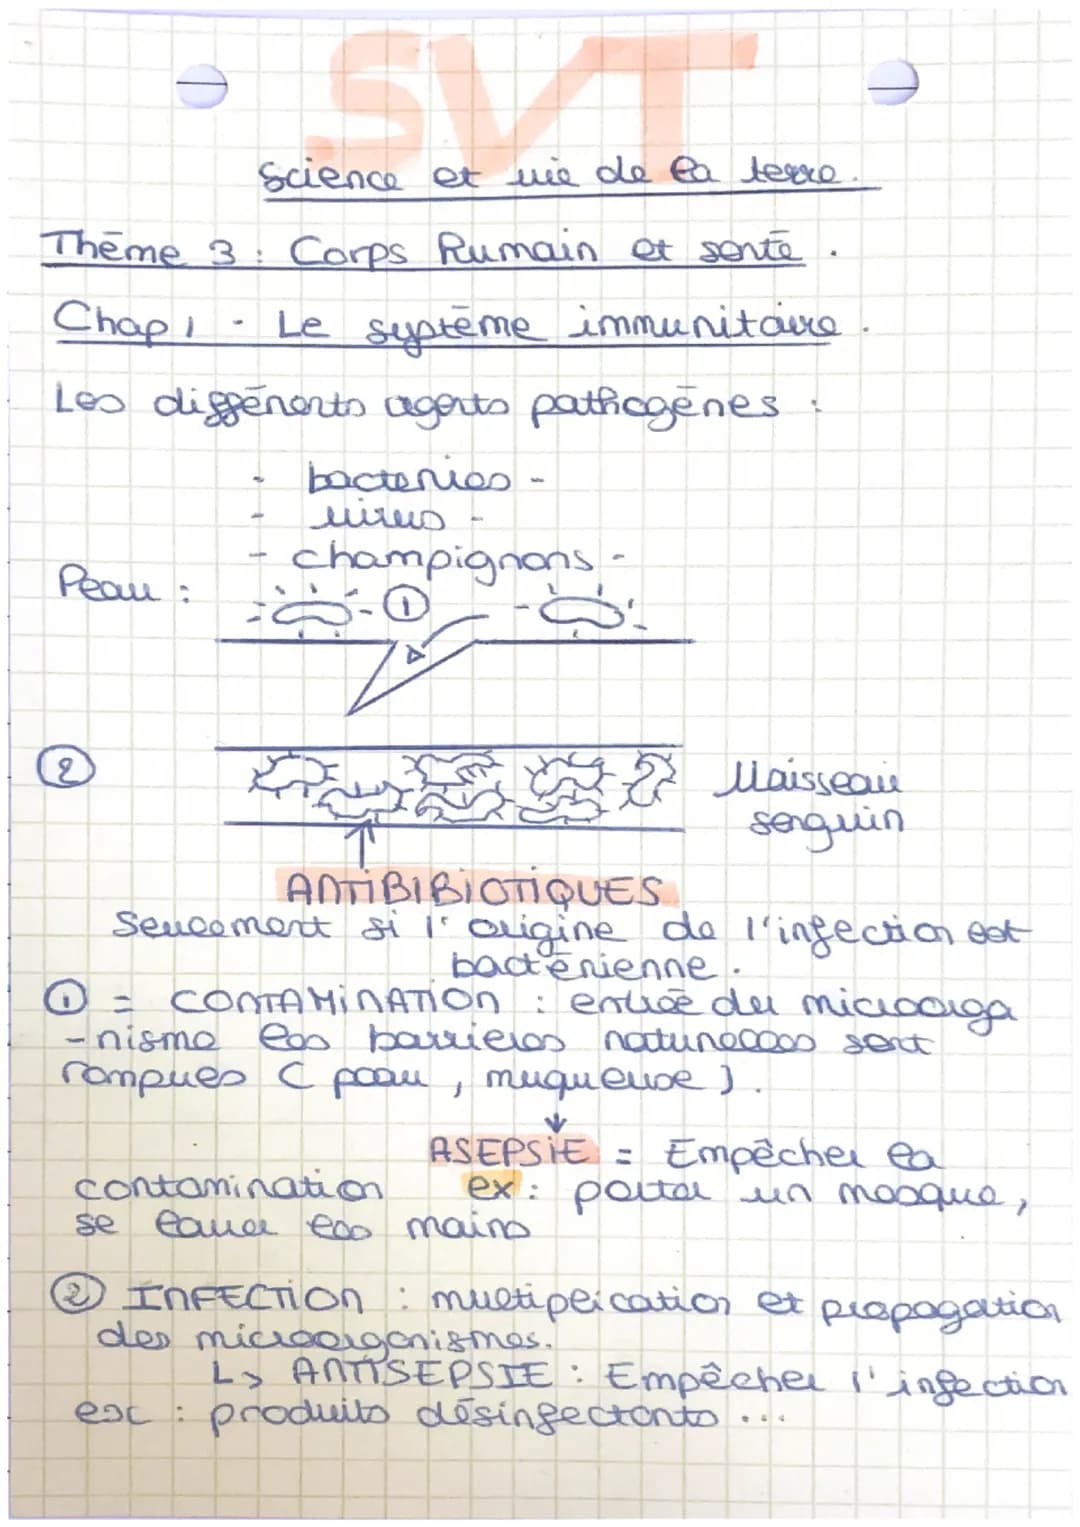 SVT
Science et vie de la terre.
Thème 3 : Corps humain et santé.
Chap 1 - Le système immunitaire.
Les différents agents pathogènes :
- bacteries -
- virus -
- champignons -
Peau :
①
②
Vaisseau
sanguin
ANTIBIBIOTIQUES
Seulement si l'origine de l'infection est
bactérienne.
① = CONTAMINATION : entrée du microorga
-nisme les barrieres naturelles sont
rompues ( peau, muqueuse ).
ASEPSIE = Empêcher la
contamination ex : porter un masque,
se laver les mains
② INFECTION : multiplication et propagation
des microorganismes.
L> ANTISEPSIE : Empêcher l'infection
ex : produits désinfectants ...